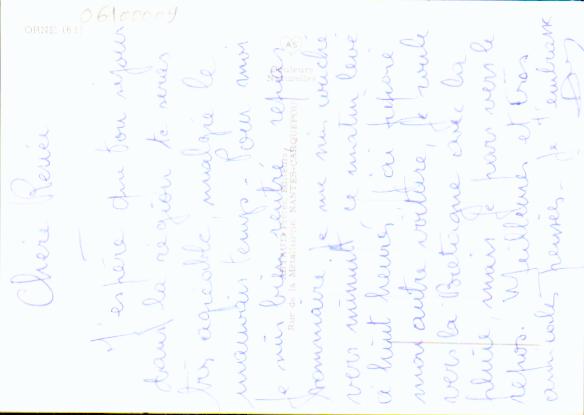 06100004
ORNE (61)
Couleurs
Naturelles
Rue de la Métallurgie NANTES-CARQUEFOU
Chère Renée
J'espère que ton séjour
dans la région te seras
très agréable, malgré le
mauvais temps. Pour moi
je suis bien rentré, repas
sommaire je me suis couché
vers minuit ce matin levé
à huit heures, j'ai préparé
mon autre voiture, je roule
vers la Bretagne avec la
pluie, mais je pars vers le
repos. Meilleures et très
amicales pensées. Je t'embrasse